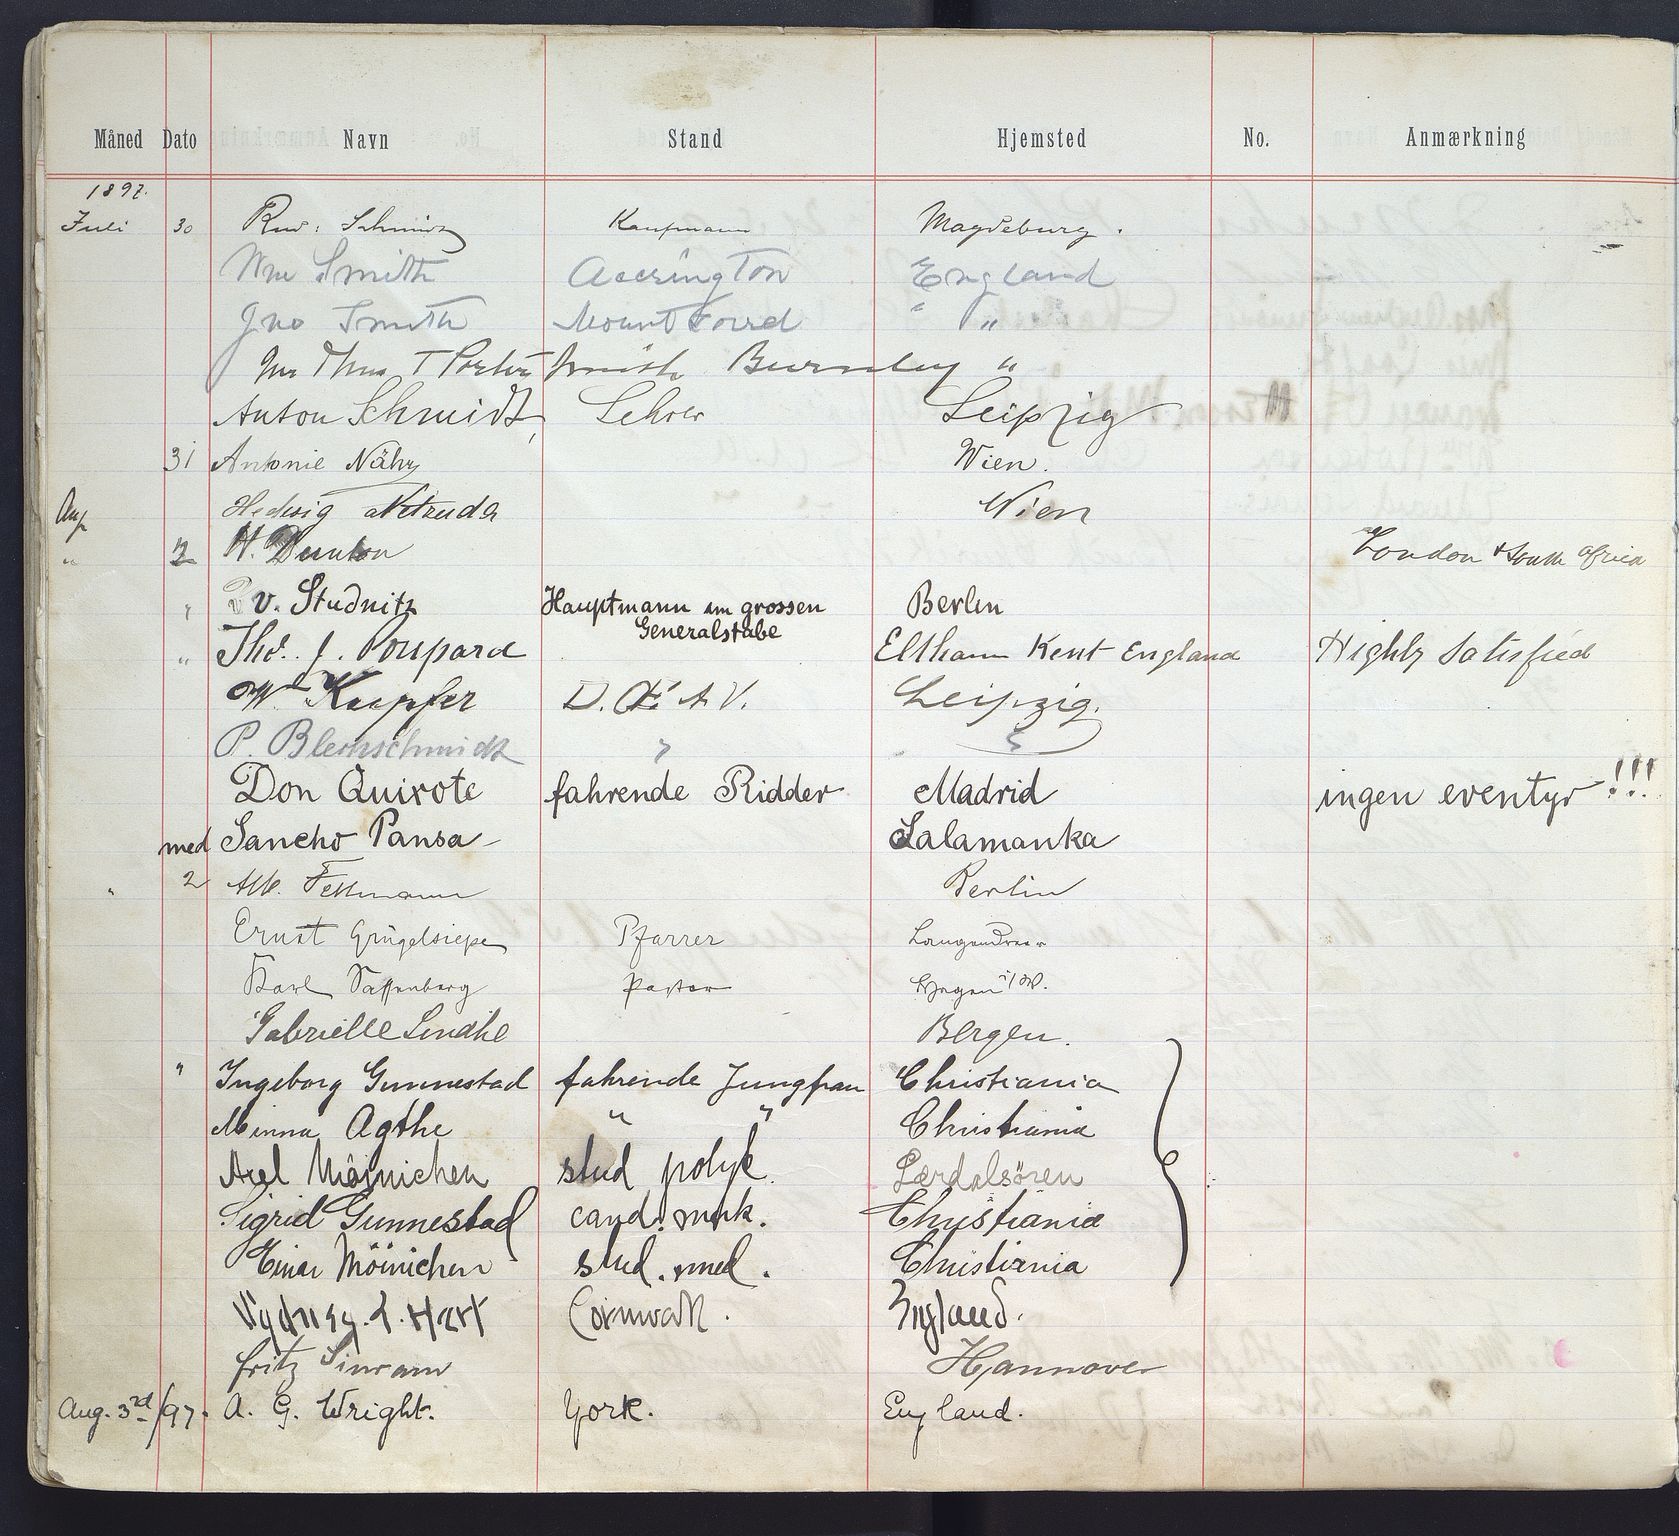 Måned Dato Navn Stand Hjemsted No. Anmærkning
1897.
Juli 30 Rud. Schmidt Kaufmann Magdeburg.
Wm Smith Accrington England
Jno Smith Mount " "
Burnley "
Anton Schmidt, Lehrer Leipzig
31 Antonie Wien.
Aug Hedwig Wien
" 2 H. Dunton London & South Africa
" v. Studnitz Hauptmann im grossen Generalstabe Berlin
" Thos. J. Poupard Eltham Kent England Highly Satisfied
W. Kaepfer D. Ö. A. V. Leipzig.
P. Blemschmidt " "
Don Quixote fahrende Ridder Madrid ingen eventyr!!!
med Sancho Pansa Salamanka
" 2 Alb. Fellmann Berlin
Ernst Grügelsiepe Pfarrer Langendreer
Karl Saffenberg Pastor Hagen i/W.
Gabrielle Lindhe Bergen.
" Ingeborg Gunnestad fahrende Jungfrau Christiania
Minna Agthe " " Christiania
Axel Möinichen stud polyt. Lærdalsören
Sigrid Gunnestad cand. Christiania
Einar Möinichen stud. med. Christiania
Sydney. J. Hart Cornwall. England.
Fritz Sinram Hannover
Aug. 3rd/97. A. G. Wright. York. England.